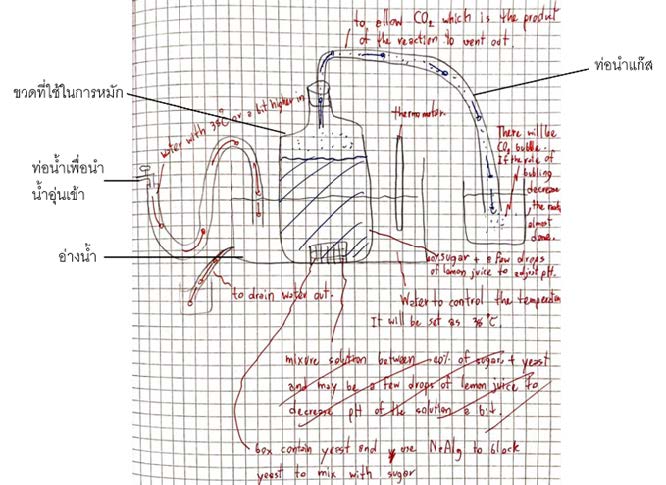 to allow CO2 which is the product
of the reaction to vent out.
ท่อนำแก๊ส
ขวดที่ใช้ในการหมัก
water with 38°C or a bit higher in
thermometor
There will be
CO2 bubble.
If the rate of
bubling
decrease
the
almost
done.
ท่อน้ำเพื่อนำ
น้ำอุ่นเข้า
อ่างน้ำ
sugar + a few drops
of lemon juice to adjust pH.
to drain water out.
Water to control the
It will be set as
mixure solution between 40% of sugar + yeast
and may be a few drops of lemon juice to
decrease pH of the solution a bit.
box contain yeast and use to block
yeast to mix with sugar